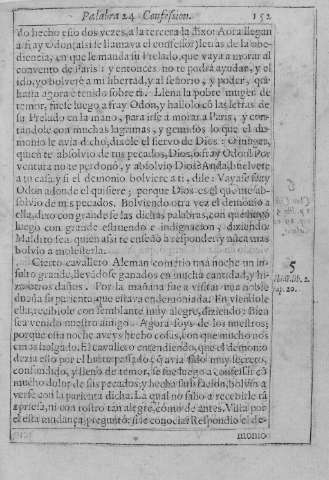 Palabra 24 Confession. 152
do hecho esto dos vezes, a la tercera la dixo: Aora llegan
a fray Odon (assi se llamaua el confessor) letras de la obe-
diencia, en que le manda su Prelado, que vaya a morar al
conuento de Paris: y entonces no te podrá ayudar, y el
yo boluere a mi libertad, y al señorio, y poder, que
hasta agora è tenido sobre ti. Llena la pobre muger de
temor, fuese luego a fray Odon, y hallolo cõ las letras de
su Prelado en la mano, para irse a morar a Paris, y con-
tandole con muchas lagrimas, y gemidos lo que el de-
monio le auia dicho, dixole el siervo de Dios: O muger,
quien te absoluio de tus pecados, Dios, o fray Odon? Por
ventura no te perdonó, y absoluio Dios? Anda, buelvete
a tu casa, y si el demonio bolviere a ti, dile: Vayase fray
Odon adonde el quisiere, porque Dios es el que me ab-
soluio de mis pecados. Bolviendo otra vez el demonio a
ella, dixo con grande fe las dichas palabras, con que huyò
luego con grande estruendo e indignacion, diziendo:
Maldito sea, quien assi te enseñò a responder, y nunca mas
bolvio a molestarla.
Cierto cavallero Aleman cometio una noche un in-
sulto grande, llevádose ganados en mucha cantidad, y hi-
zo otros daños. Por la mañana fue a visitar una noble
dueña su parienta, que estava endemoniada. En viendole
ella, recibiole con semblante muy alegre, diziendo: Bien
sea venido nuestro amigo. Agora soys de los nuestros;
porque esta noche aveys hecho cosas, con que mucho nos
emos holgado. El cavallero entendiendo, que el demonio
dezia esto por el hurto passado, q̃ avia sido muy secreto,
confundido, y lleno de temor, se fue luego a confessar cõ
mucho dolor de sus pecados, y hecho su confession, bolvio a
verse con la parienta dicha. La qual no salio a recebirle tã
apriesa, ni con rostro tan alegre, como de antes. Vista por
el esta mudança, preguntó, si le conocia? Respondio el de-
monio
5
lib. 2.
cap. 20.